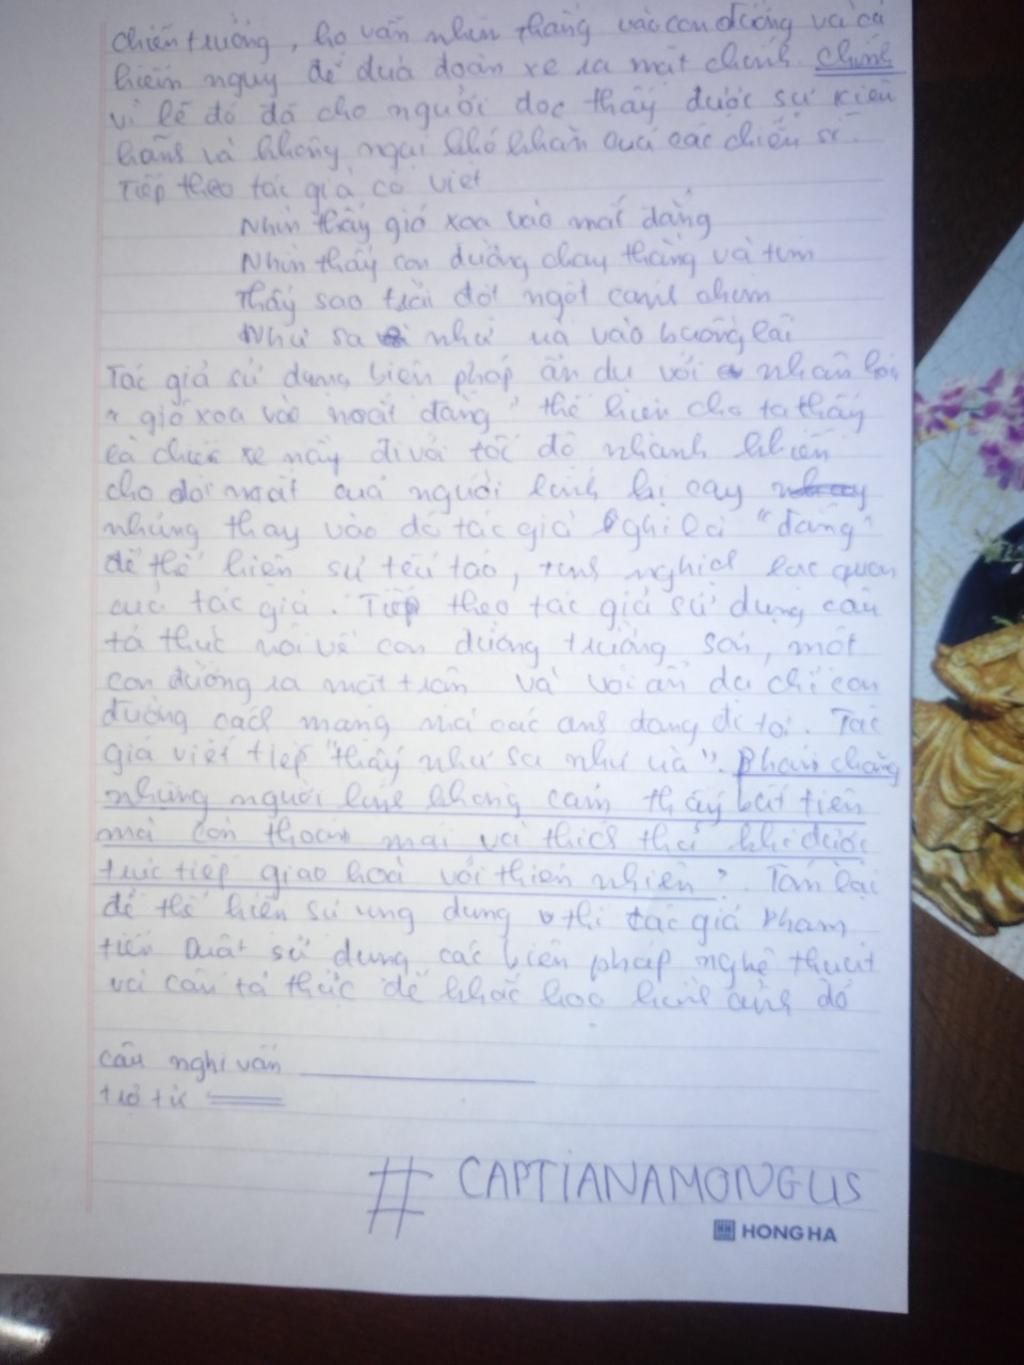 chiến trường, họ vẫn nhìn thẳng vào con đường và cả
hiểm nguy để đưa đoàn xe ra mặt chính. chính
vì lẽ đó đã cho người đọc thấy được sự kiêu
hãnh và không ngại khó khăn của các chiến sĩ.
Tiếp theo tác giả có viết
Nhìn thấy gió xoa vào mắt đắng
Nhìn thấy con đường chạy thẳng và tim
Thấy sao trời đột ngột cánh chim
Như sa như ùa vào buồng lái
Tác giả sử dụng biện pháp ẩn dụ với nhân hóa
"gió xoa vào mắt đắng" thể hiện cho ta thấy
là chiếc xe này đi với tốc độ nhanh khiến
cho đôi mắt của người lính bị cay
nhưng thay vào đó tác giả ghi là "đắng"
để thể hiện sự tếu táo, tinh nghịch lạc quan
của tác giả. Tiếp theo tác giả sử dụng câu
tả thực nói về con đường trường sơn, một
con đường ra mặt trận và với ẩn dụ chỉ con
đường cách mạng mà các anh đang đi tới. Tác
giả viết tiếp "thấy như sa như ùa". Phải chăng
những người lính không cảm thấy bất tiện
mà còn thoải mái và thích thú khi được
trực tiếp giao hoà với thiên nhiên?. Tóm lại
để thể hiện sự ung dung thì tác giả Phạm
tiến Duật sử dụng các biện pháp nghệ thuật
và câu tả thực để khắc hoạ hình ảnh đó
câu nghi vấn
trợ từ
# CAPTIANAMONGUS
HONG HA